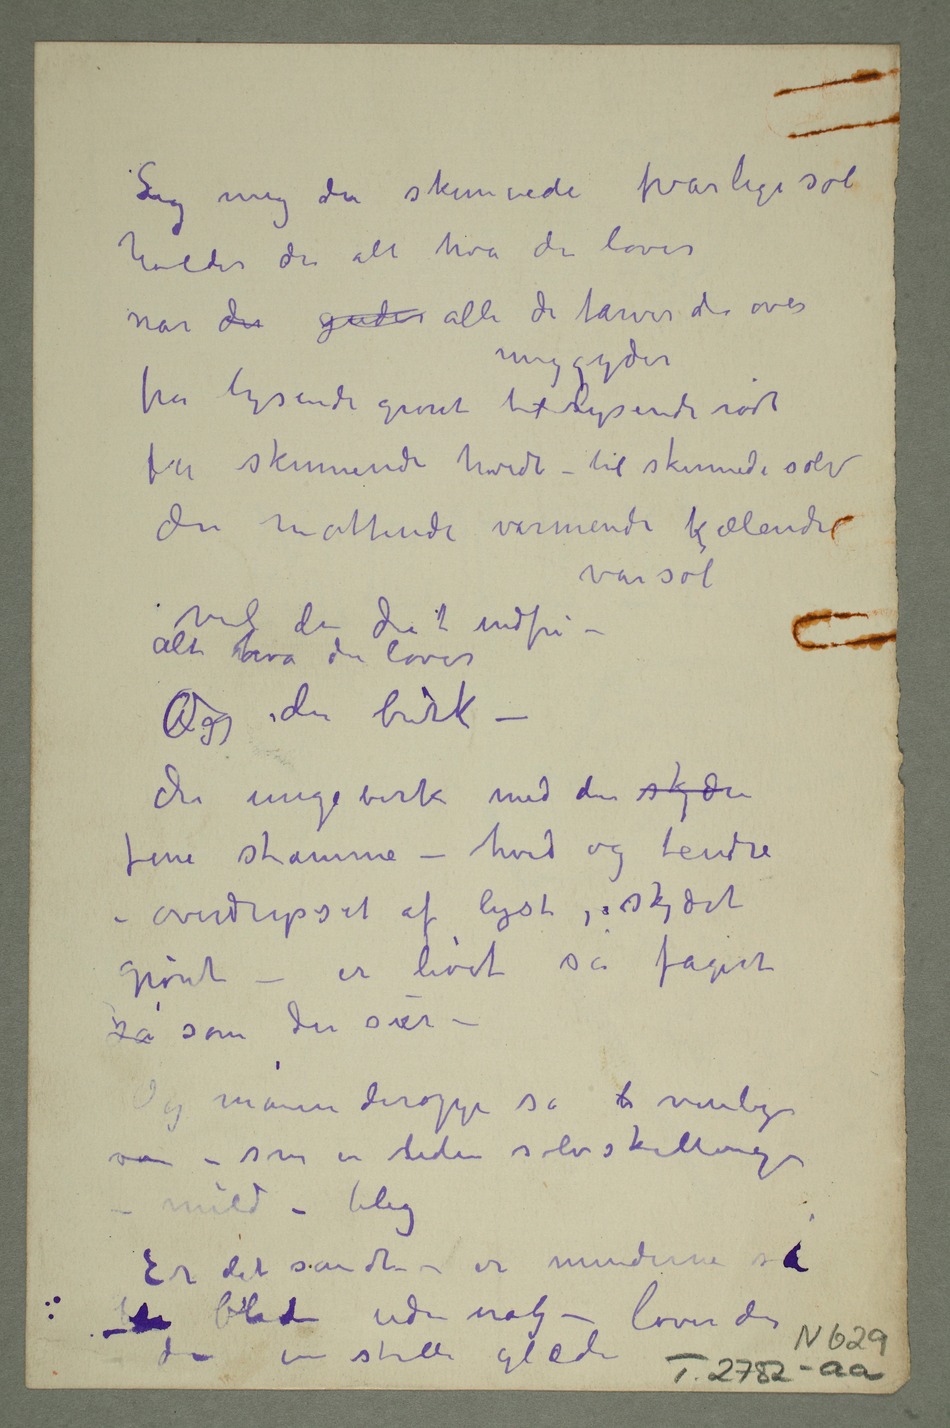 Sig meg du skinnede svarlige sol
holder du alt hva du lover
når du gyder alle de farver du over
meg gyder
fra lysende grønt til lysende rødt
fra skinnende hvidt – til skinnede sølv
du mættende varmende kjælende
vårsol
vil du det indfri –
alt hva du lover
Og du birk –
du unge birk med den skjære
fine stamme – hvid og tendre
– overdrysset af lyst, skjært
grønt – er livet så fagert
så som du sier –
Og månen deroppe så venlig
– som en liden sølvskilling
– mild – bleg
Er det sandt – er minderne så
blide uden nag – lover du
du en stille glæde
N 629
T. 2782-aa